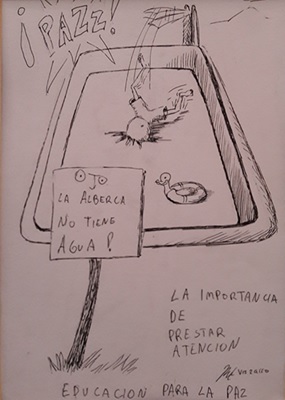 ¡PAZZ!
OJO
LA ALBERCA
NO TIENE
AGUA!
LA IMPORTANCIA
DE
PRESTAR
ATENCION
EDUCACION PARA LA PAZ